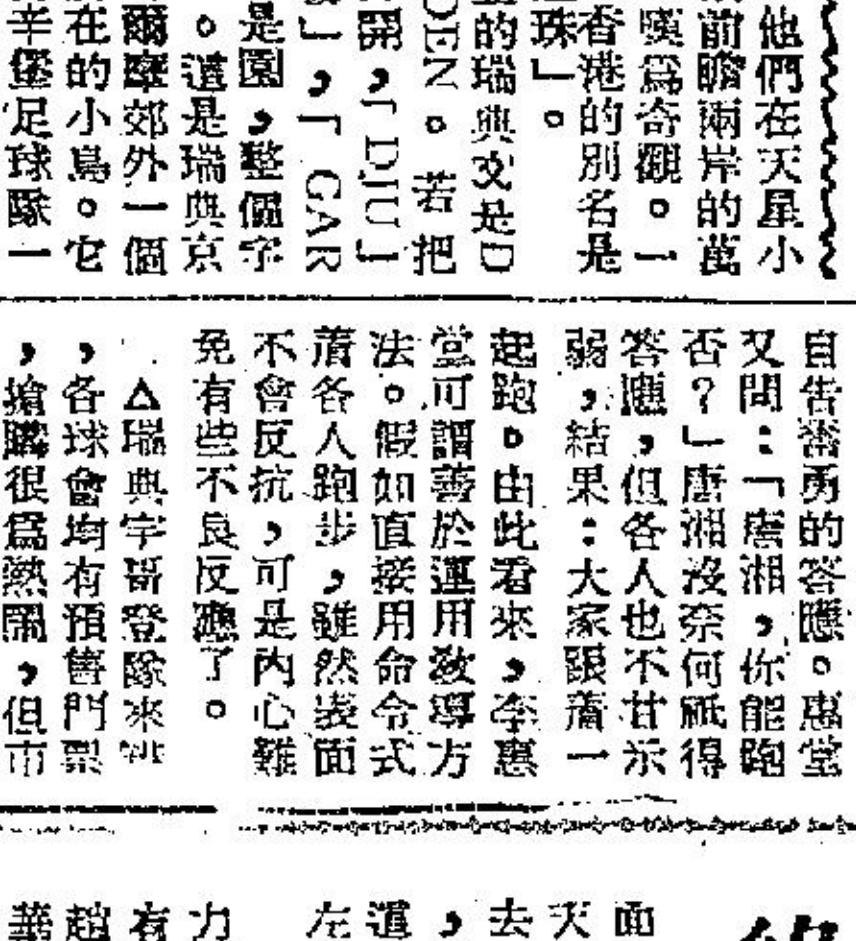 他們在天星小
前瞻兩岸的萬
嘆爲奇觀。一
香港的別名是
珠」。
的瑞典文是D
DEN。若把
開,「DJU」
」,「GAR
是園,整個字
。這是瑞典京
爾摩郊外一個
在的小島。它
辛堡足球隊一
自告奮勇的答應。惠堂
又問:「唐湘,你能跑
否?」唐湘沒奈何祇得
答應,但各人也不甘示
弱,結果:大家跟着一
起跑。由此看來,李惠
堂可謂善於運用敎導方
法。假如直接用命令式
着各人跑步,雖然表面
不會反抗,可是內心難
免有些不良反應了。
△瑞典宇哥登隊來
,各球會均有預售門票
,搶購很爲熱鬧,但市
面
天
去
,
這
左
力
有
趙
華